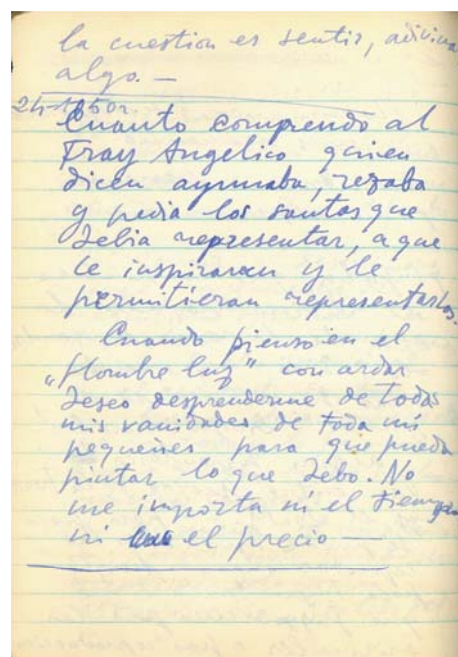 la cuestion es sentir, adivina
algo. —
Cuanto comprendo al
Fray Angelico quien
dicen ayunaba, rezaba
y pedia los santos que
debia representar, a que
le inspiraran y le
permitieran representarlos.
Cuando pienso en el
„Hombre luz" con ardor
deseo desprenderme de todas
mis vanidades de toda mi
pequeñes para que pueda
pintar lo que debo. No
me importa ni el tiempo
ni el precio —